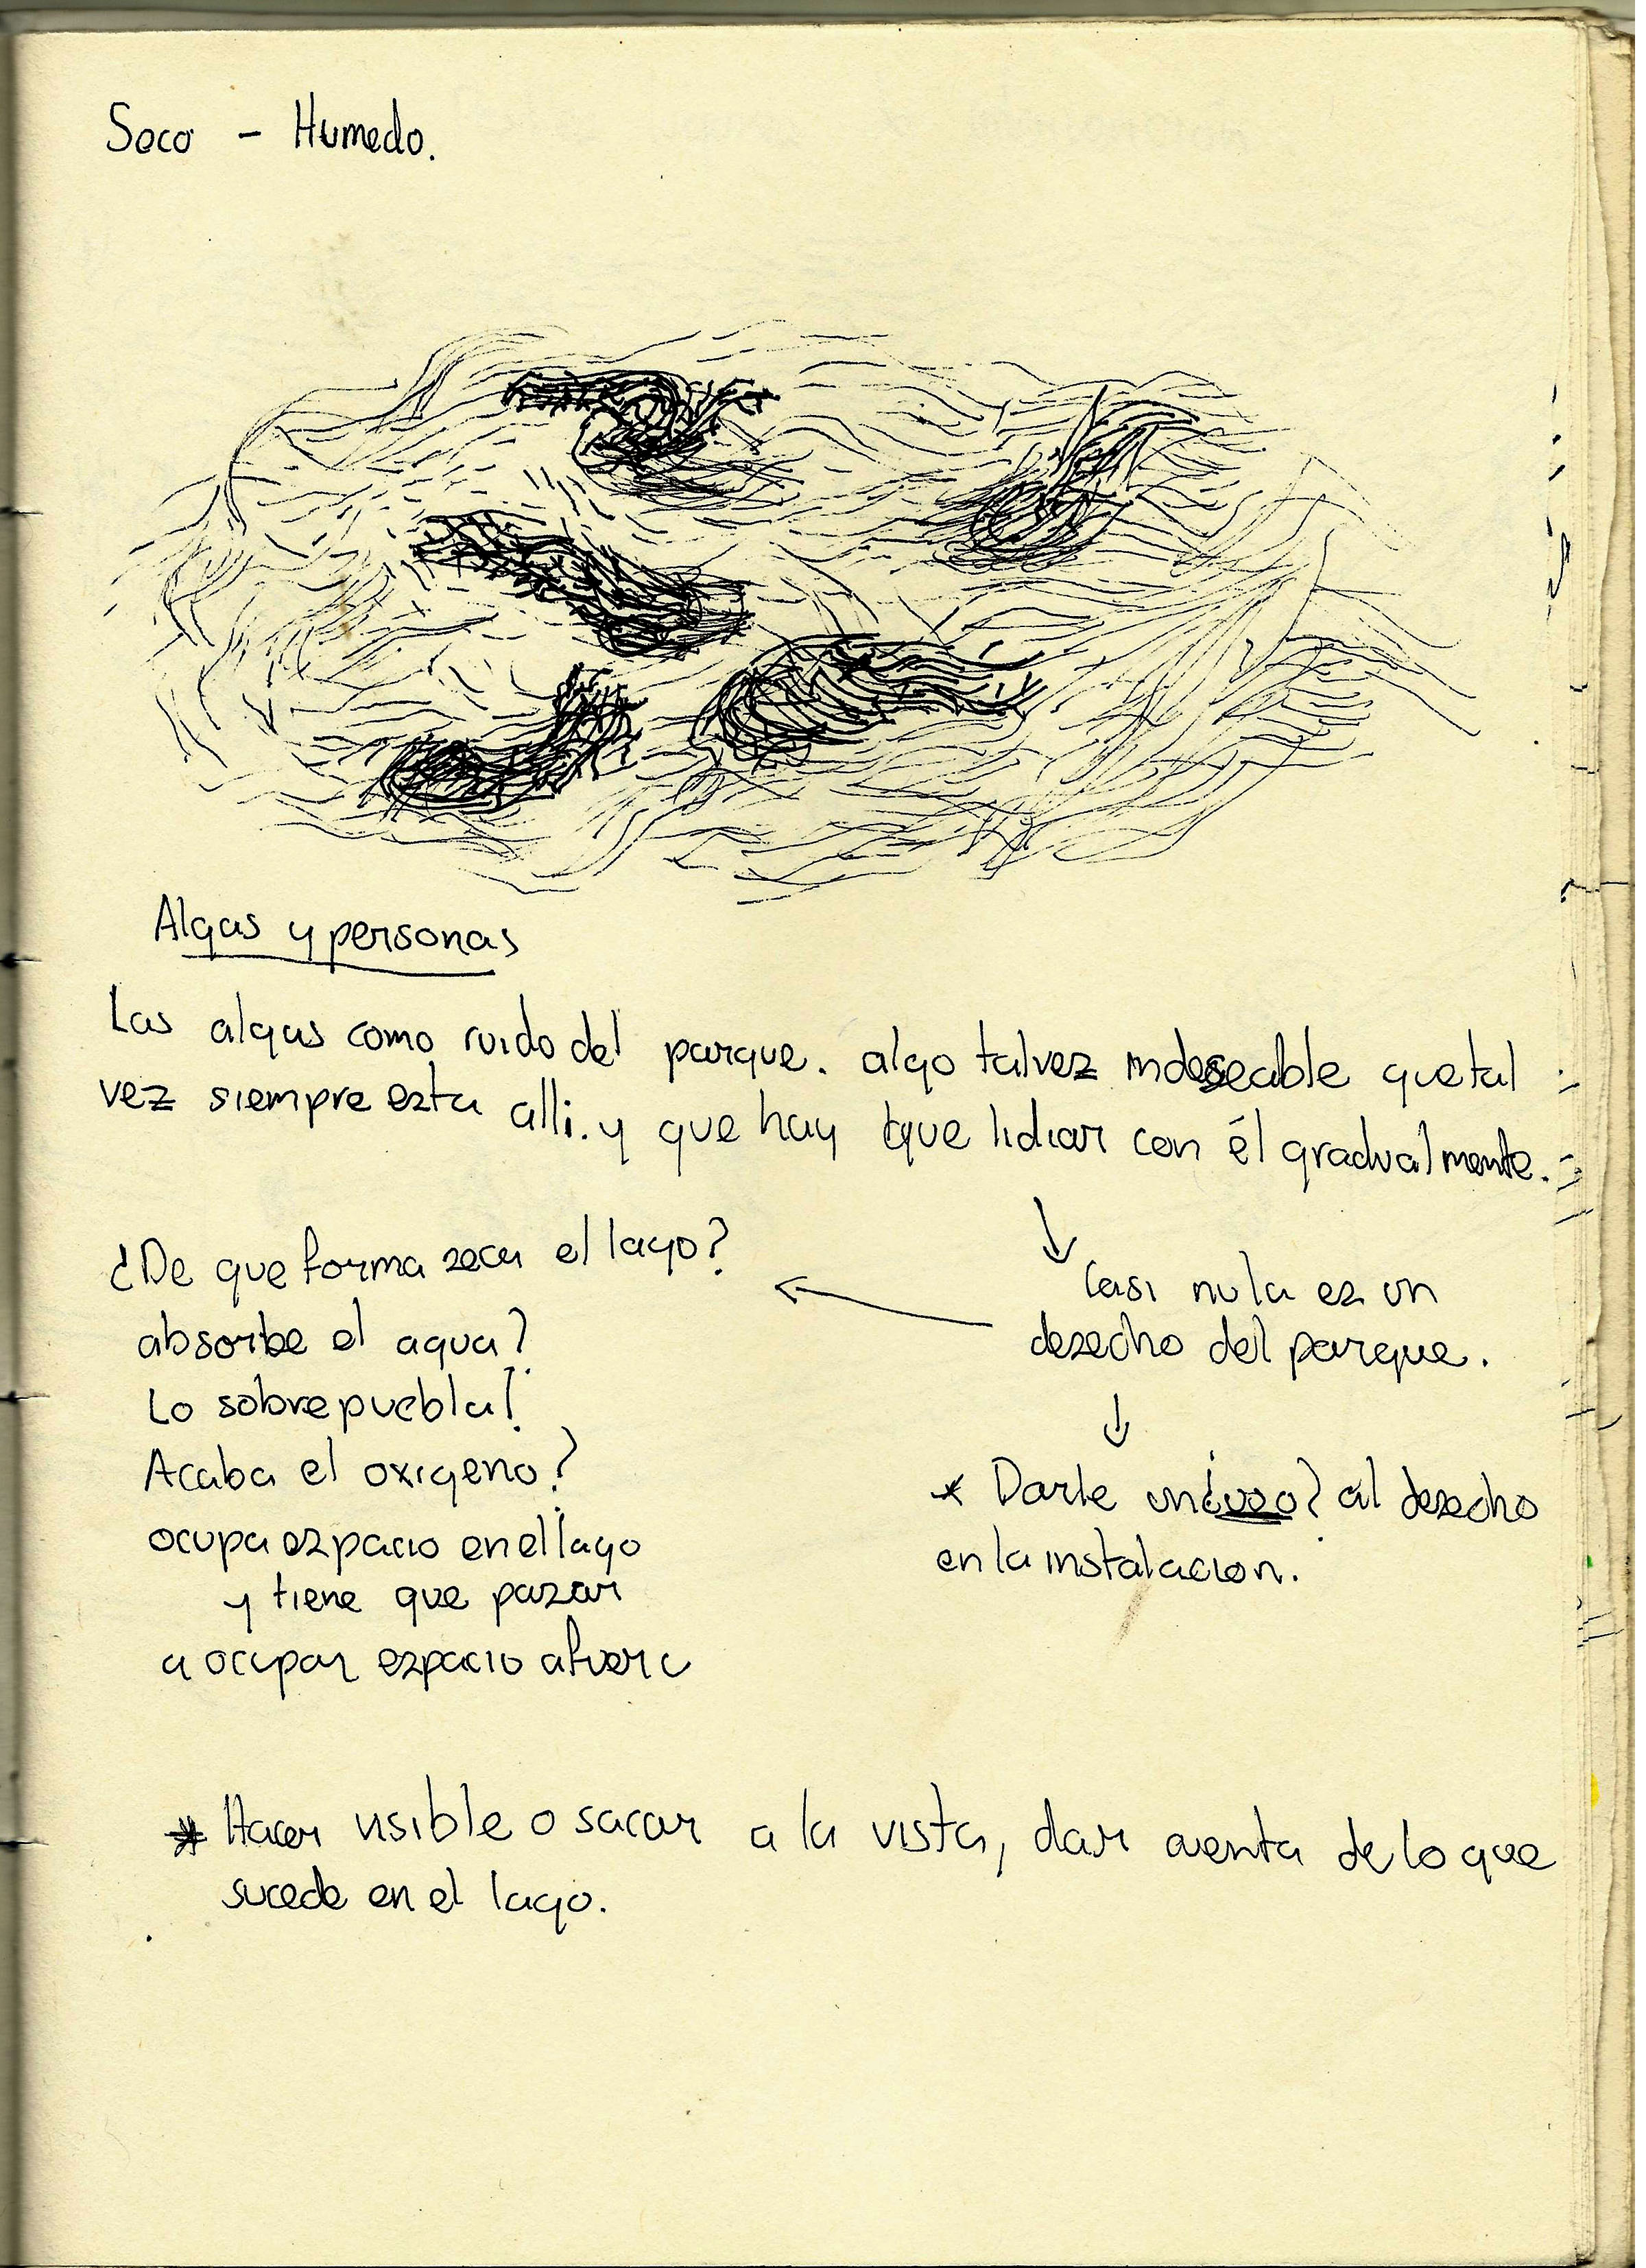 Seco - Humedo.
Algas y personas
Las algas como ruido del parque. algo talvez indeseable que tal
vez siempre ezta alli. y que hay que lidiar con él gradualmente.
¿De que forma zeca el lago?
absorbe el agua?
Lo sobrepuebla?
Acaba el oxigeno?
ocupa ezpacio en el lago
y tiene que pazar
a ocupar ezpacio afuera
Casi nula ez un
dezecho del parque.
* Darle un ¿uzo? al dezecho
en la instalacion.
* Hacer visible o sacar a la vista, dar cuenta de lo que
sucede en el lago.